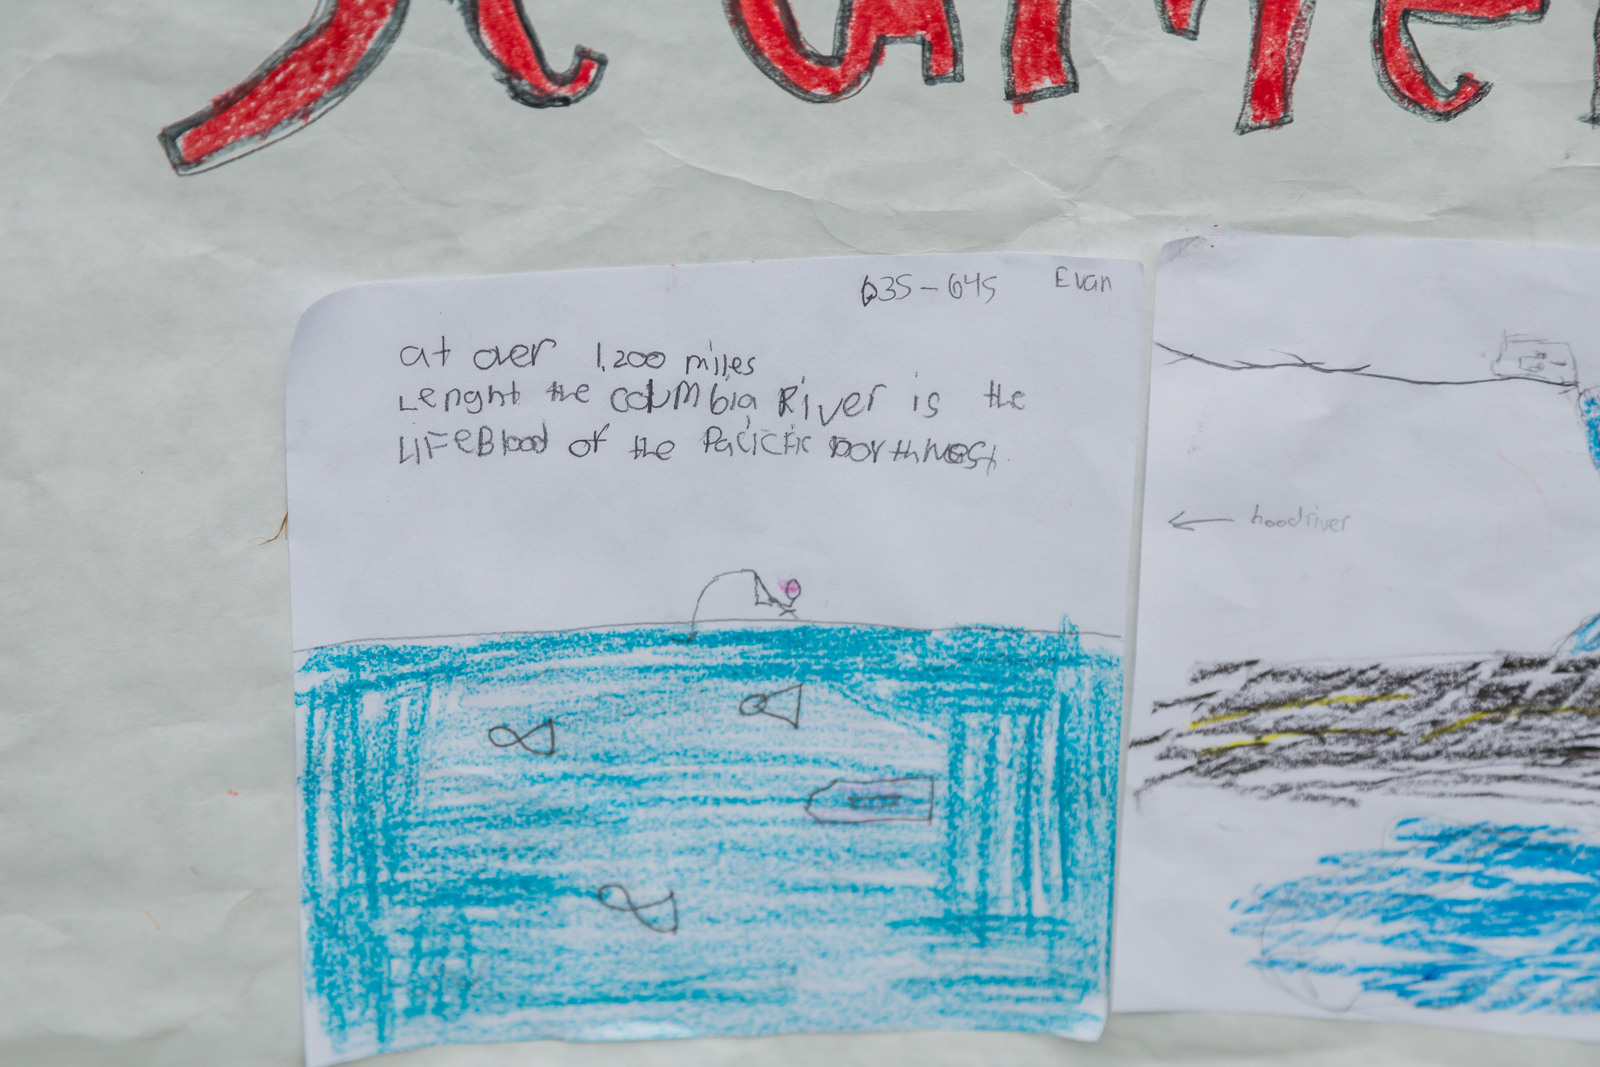 635-645 Evan
at over 1,200 miles
Lenght the columbia River is the
LifeBlood of the Pacicfic northwest
hoodriver